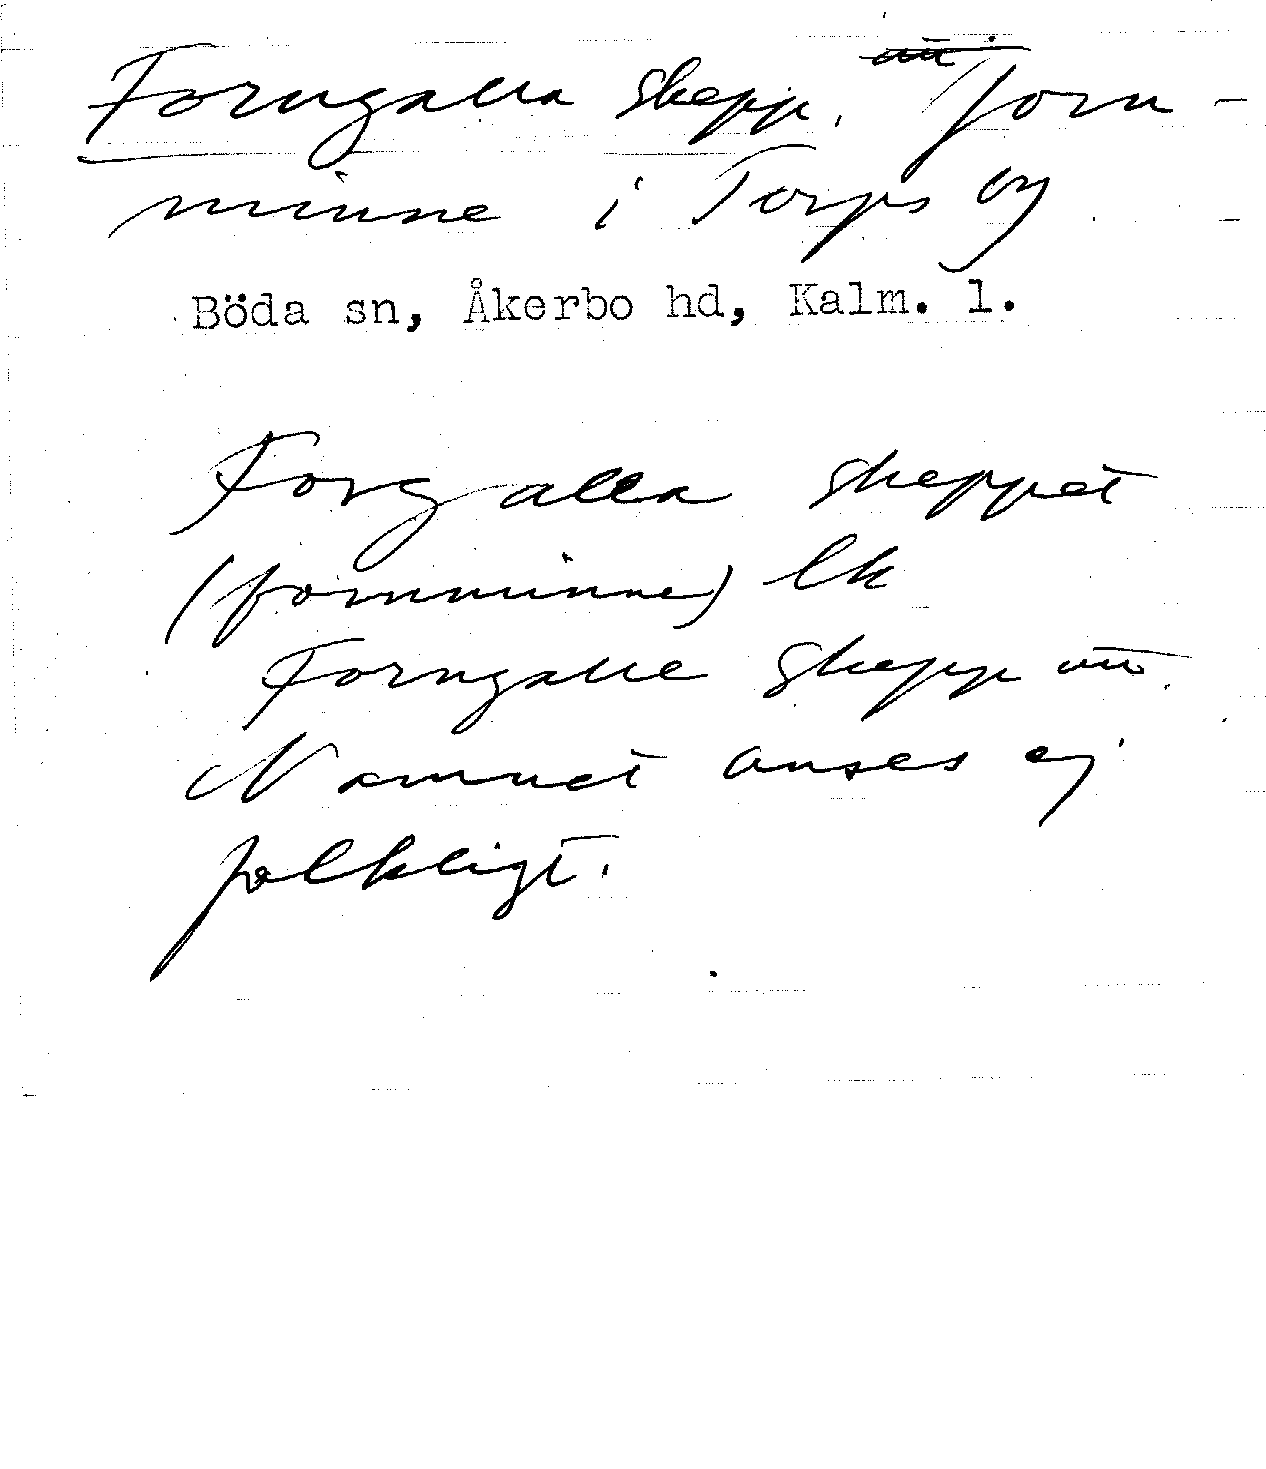 Forngalla skepp, forn-
minne i Torps by
Böda sn, Åkerbo hd, Kalm. l.
Forgalla skeppet
(fornminne) Ek
Forngalle skepp utt.
Namnet anses ej
folkligt.